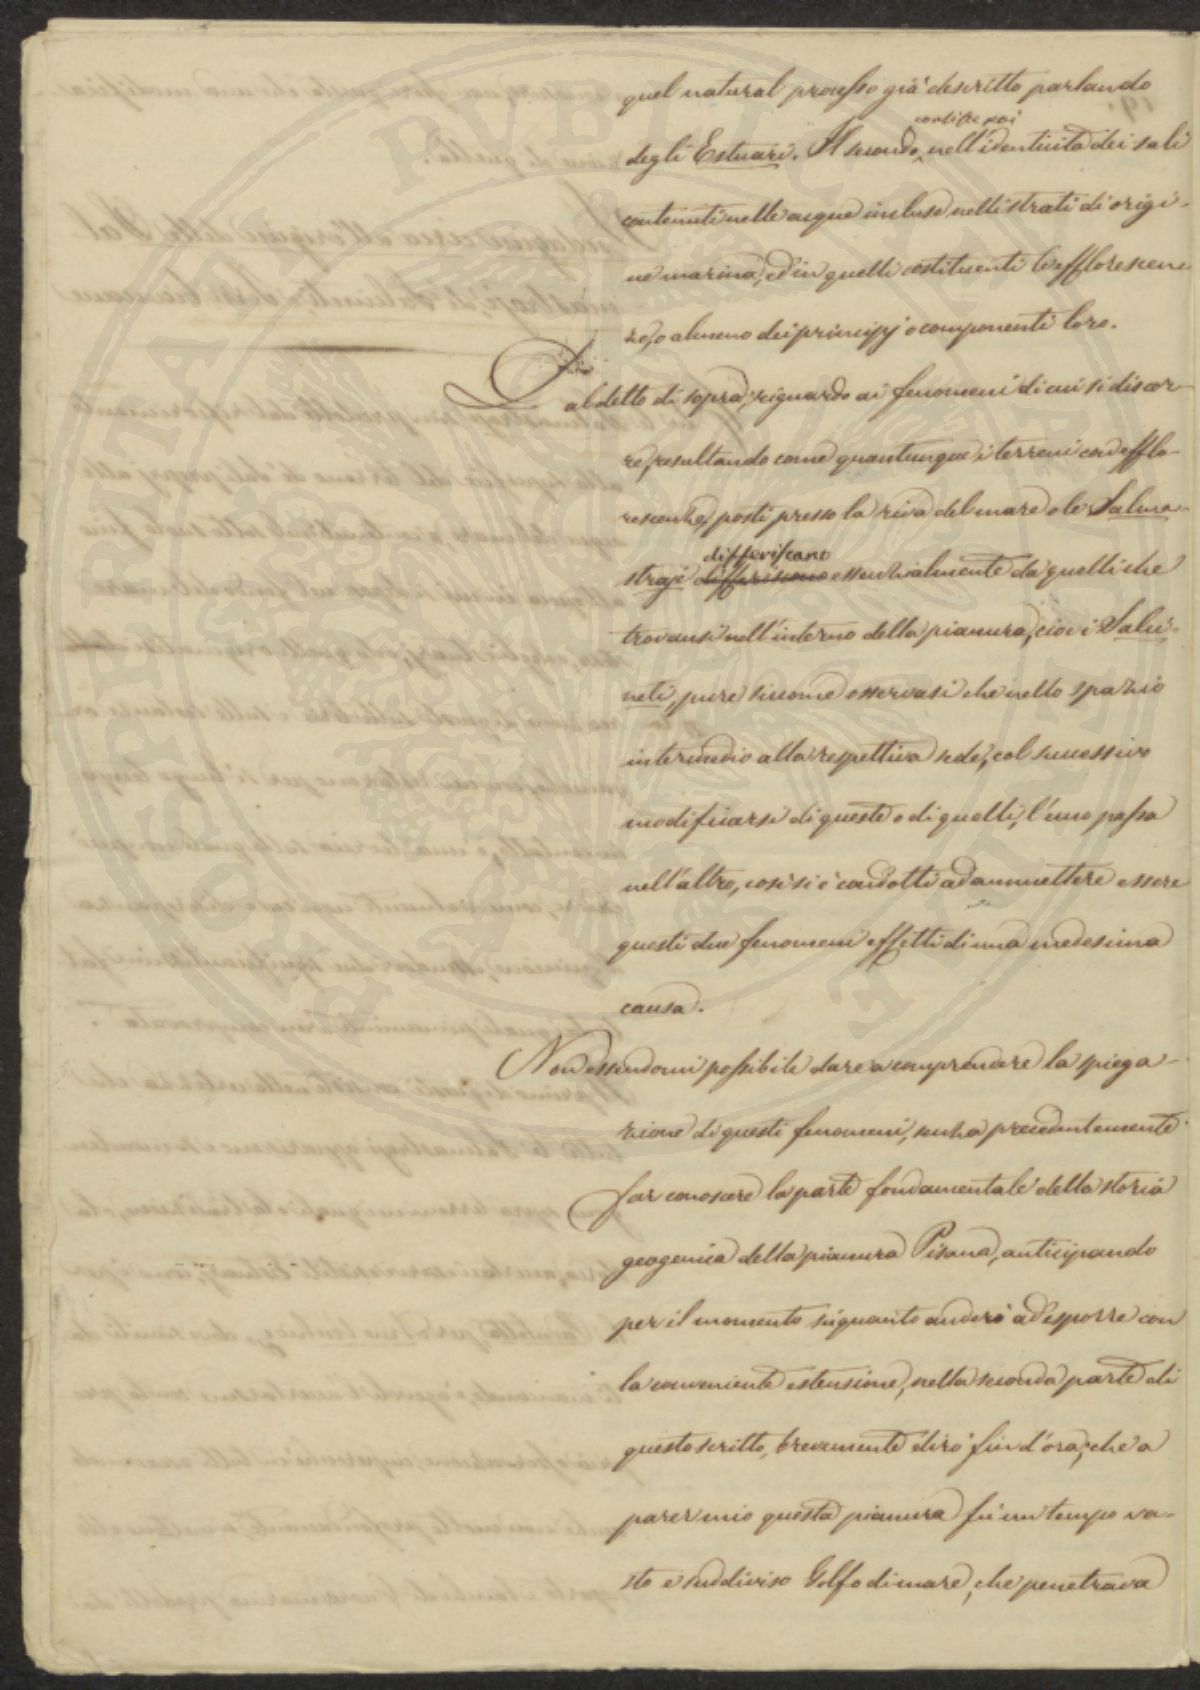 quel natural processo già descritto parlando
consiste poi
degli Estuari. Il secondo, nell'identicità dei sali
contenuti nelle acque incluse nelli strati di origi-
ne marina, ed in quelli costituenti le efflorescen-
ze, o almeno dei principj o componenti loro.
Dal detto di sopra, riguardo ai fenomeni di cui si discor-
re, resultando come quantunque i terreni con efflo-
rescenze, posti presso la riva del mare o le Salma-
differiscano
straje differiscono essenzialmente da quelli che
trovansi nell'interno della pianura, cioè i Salci-
neti, pure siccome osservasi che nello spazio
intermedio alla respettiva sede, col successivo
modificarsi di queste o di quelli, l'uno passa
nell'altro, così si è condotti ad ammettere essere
questi due fenomeni effetti di una medesima
causa.
Non essendomi possibile dare a comprendere la spiega-
zione di questi fenomeni, senza precedentemente
far conoscere la parte fondamentale della storia
geogenica della pianura Pisana, anticipando
per il momento su quanto anderò ad esporre con
la conveniente estensione, nella seconda parte di
questo scritto, brevemente dirò fin d'ora, che a
parer mio questa pianura fù un tempo va-
sto e suddiviso Golfo di mare, che penetrava